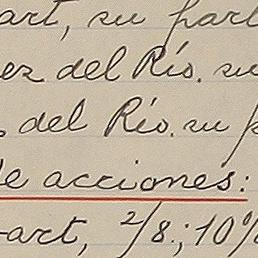 art, su part
ez del Río. su
del Río. su p
de acciones:
art, 2/8.; 10%